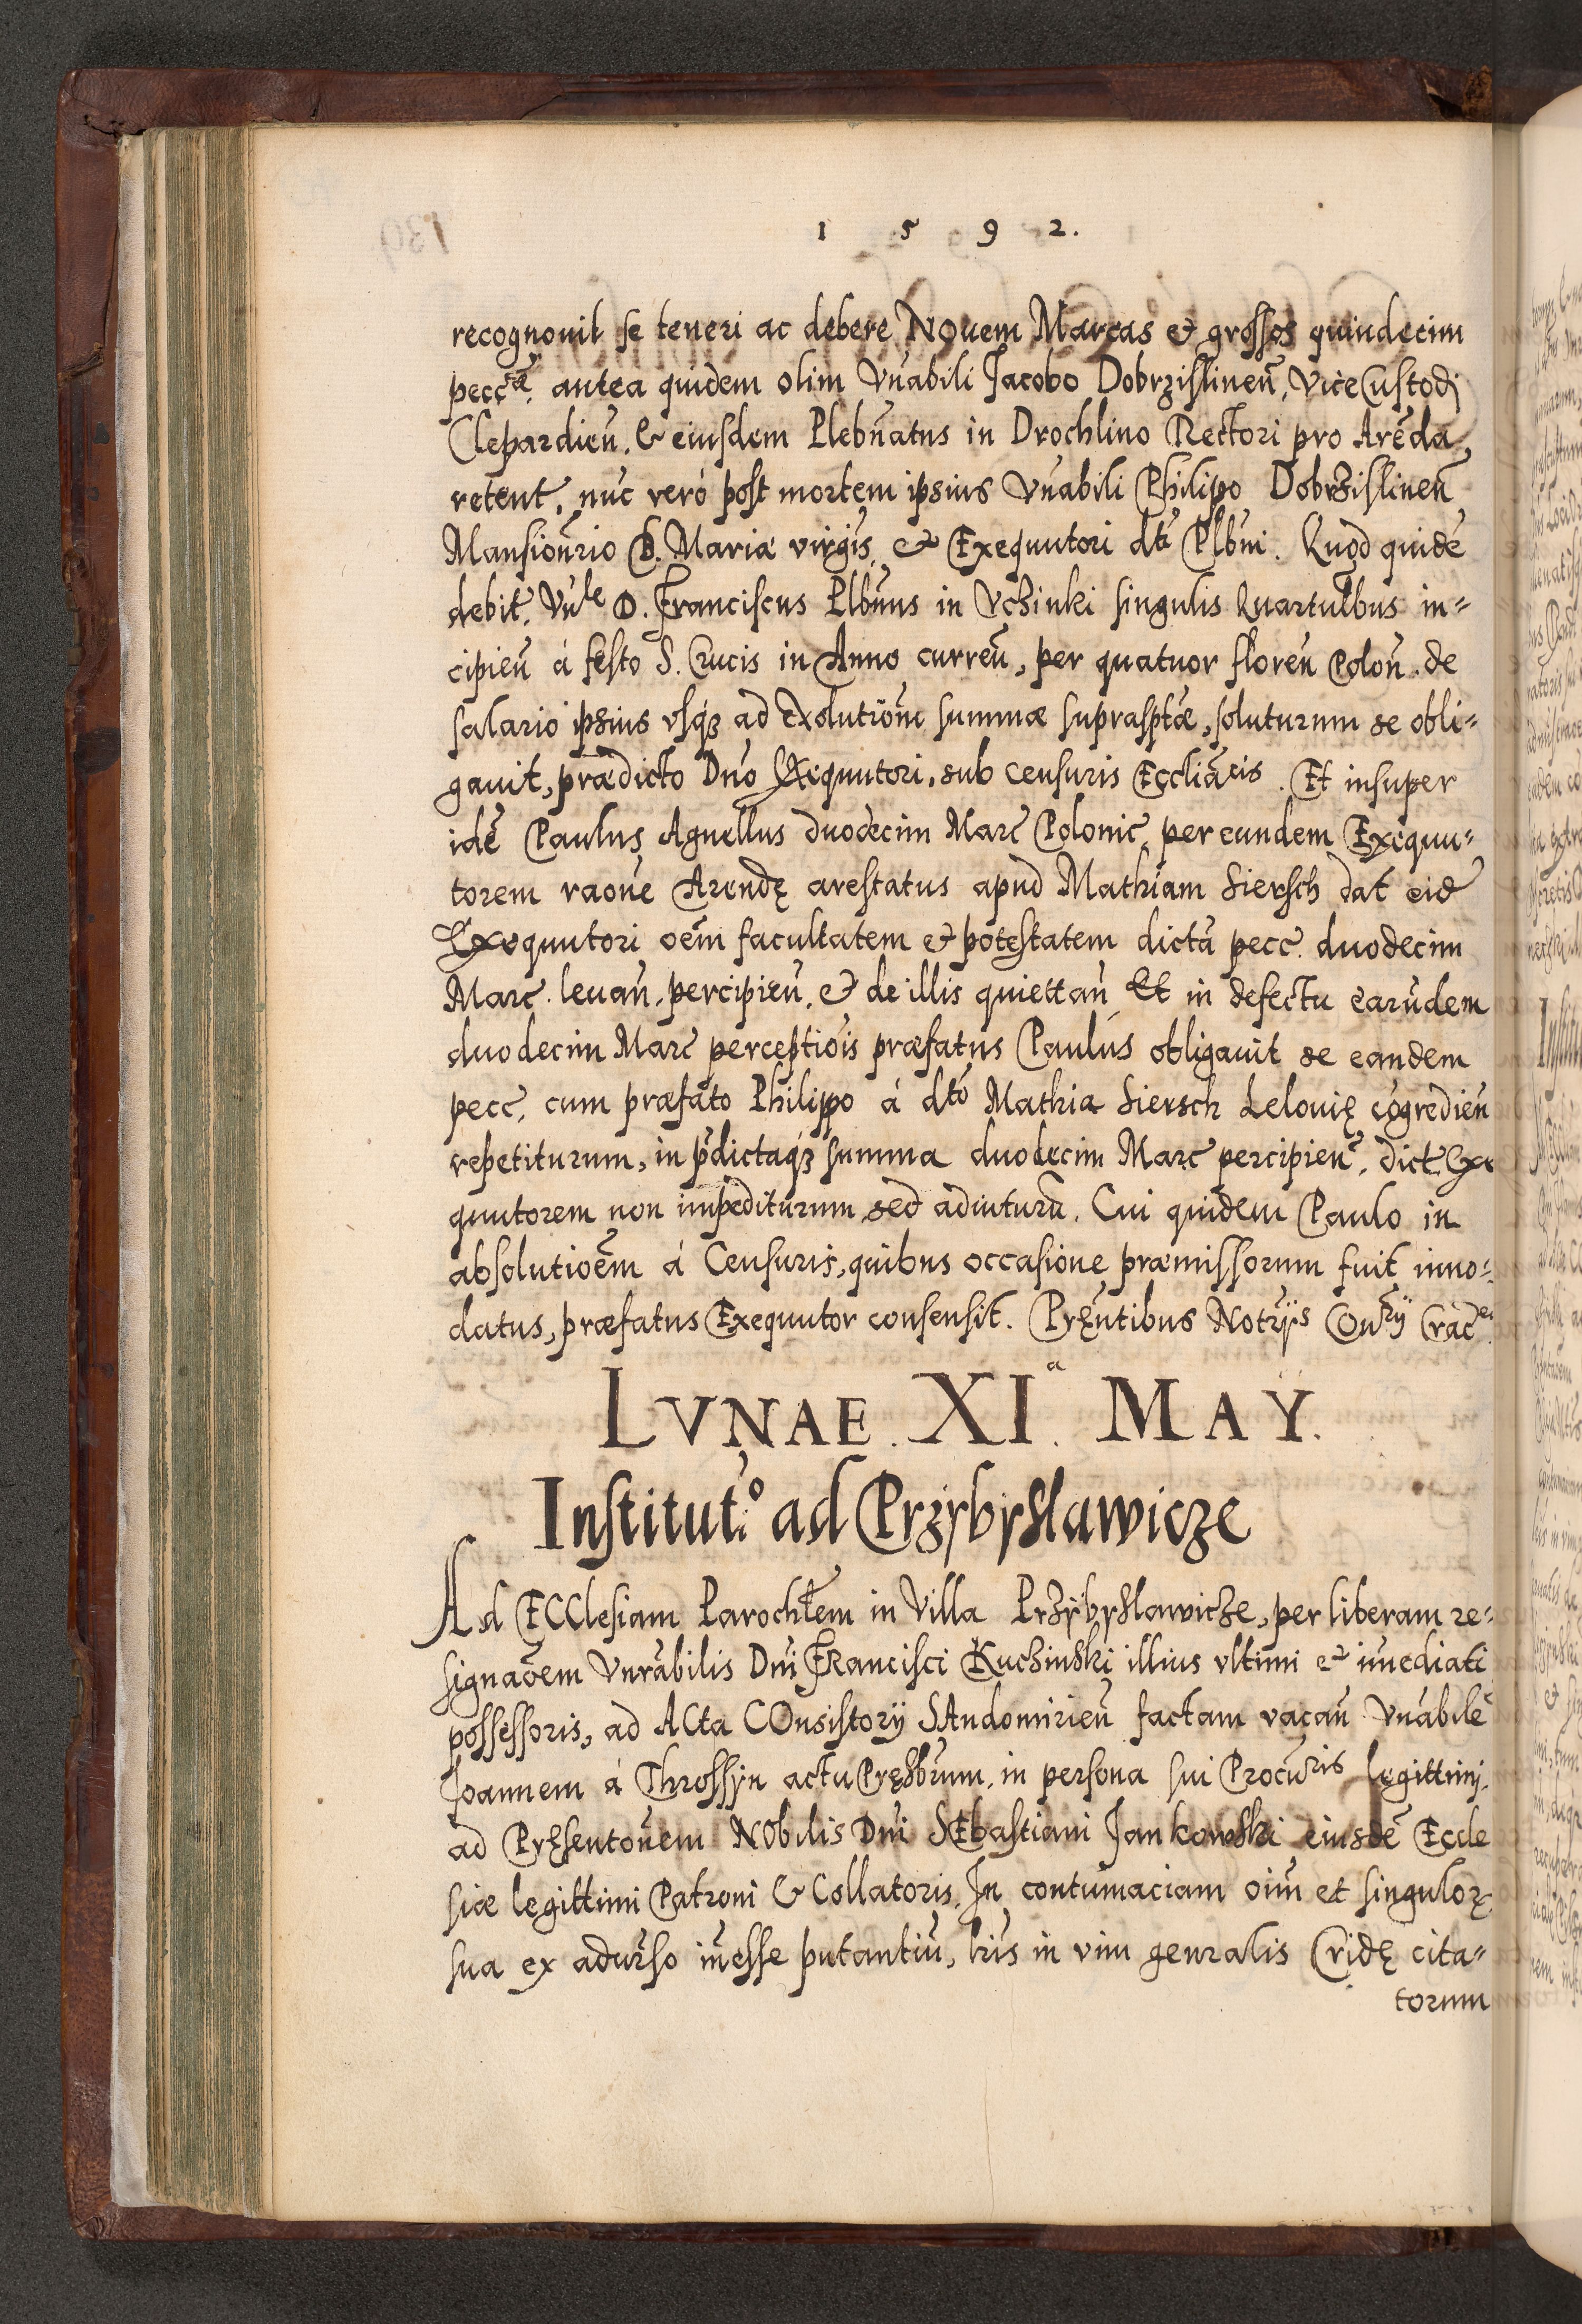 1 5 9 2.
recognouit se teneri ac debere NOuem Marcas et grossos quindecim
pecc̃æ. antea quidem olim Vn̄abili Jacobo Dobrzislineñ, ViceCustodi
Clepardieñ. & eiusdem Plebn̄atus in Drochlino Rectori pro Arēda
retent̃, nūc verò post mortem ipsius Vn̄abili Philipo Dobrzislineñ
Mansion̄rio B. Mariæ virgīs, et Exequutori dti Plbni. Quod quidē
debit̃. Vnle D. Franciscus Plbn̄us in Vchinki singulis Quartu̅lbus in-
cipieñ á festo S. Crucis in Anno curreñ, per quatuor floreñ Poloñ. de
salario ipsius vsq́ʒ ad exolutiōm summæ suprasptæ, soluturum se obli-
gauit, prædicto Dn̄o Exequutori, sub censuris Ecclīacis. Et insuper
idē Paulus Agnellus duodecim Marc̃ Polonic̃, per eundem Exequu-
torem raōne Arendę arestatus apud Mathiam Siersch dat eid̃
Exequutori oēm facultatem et potestatem dictā pecc̃. duodecim
Marc̃. leuañ, percipieñ, et de illis quiettañ Et in defectu earūdem
duodecim Marc̃ perceptiōis præfatus Paulus obligauit se eandem
pecc̃, cum præfato Philippo á dtō Mathia Siersch Lelouię cōgredieñ
repetiturum, in p̄dictaq́ʒ summa duodecim Marc̃ percipieñ, dict̃ Exe
quutorem non impediturum sed adiuturū. Cui quidem Paulo in
absolutioēm á Censuris, quibus occasione præmissorum fuit inno-
datus, præfatus Exequutor consensit. Pręn̄tibus Notrijs Con̄rij Crac̃en
LVNAE. XIa. MAY.
Institut̃o ad Przybyslawicze
Ad ECClesiam Parochłem in Villa Przybyslawicze, per liberam re-
signaōem Vnrābilis Dn̄i FRancisci Kuchinski illius vltimi et im̄ediati
possessoris, ad ACta COnsistorij SAndomirieñ factam vacañ Vn̄abilē
Joannem á Throssyn actu Pręsbrūm, in persona sui Procuris legittimj,
ad Pręsentoñem NObilis Dn̄i SEbastiani Jankowski eiusdē Eccle
siæ legittimi Patroni & Collatoris. In contumaciam oīm et singuloꝝ
sua ex adūrso in̄esse putantiū, lr̄is in vim genralis Cridę cita-
torum